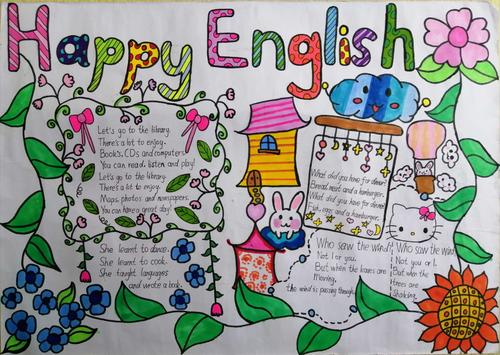 Happy English
Let's go to the library.
There's a lot to enjoy.
Books, CDs and computers.
You can read, listen and play!
Let's go to the library.
There's a lot to enjoy.
Maps, photos and newspapers.
You can have a great day!
She learnt to dance.
She learnt to cook.
She taught languages
and wrote a book.
What did you have for dinner?
Bread, meat and a hamburger.
What did you have for dinner?
Fish, eggs and a hamburger.
Who saw the wind
Not I or you.
But when the leaves are
the wind is passing through.
Who saw the wind
Not you or I.
But when the
trees are